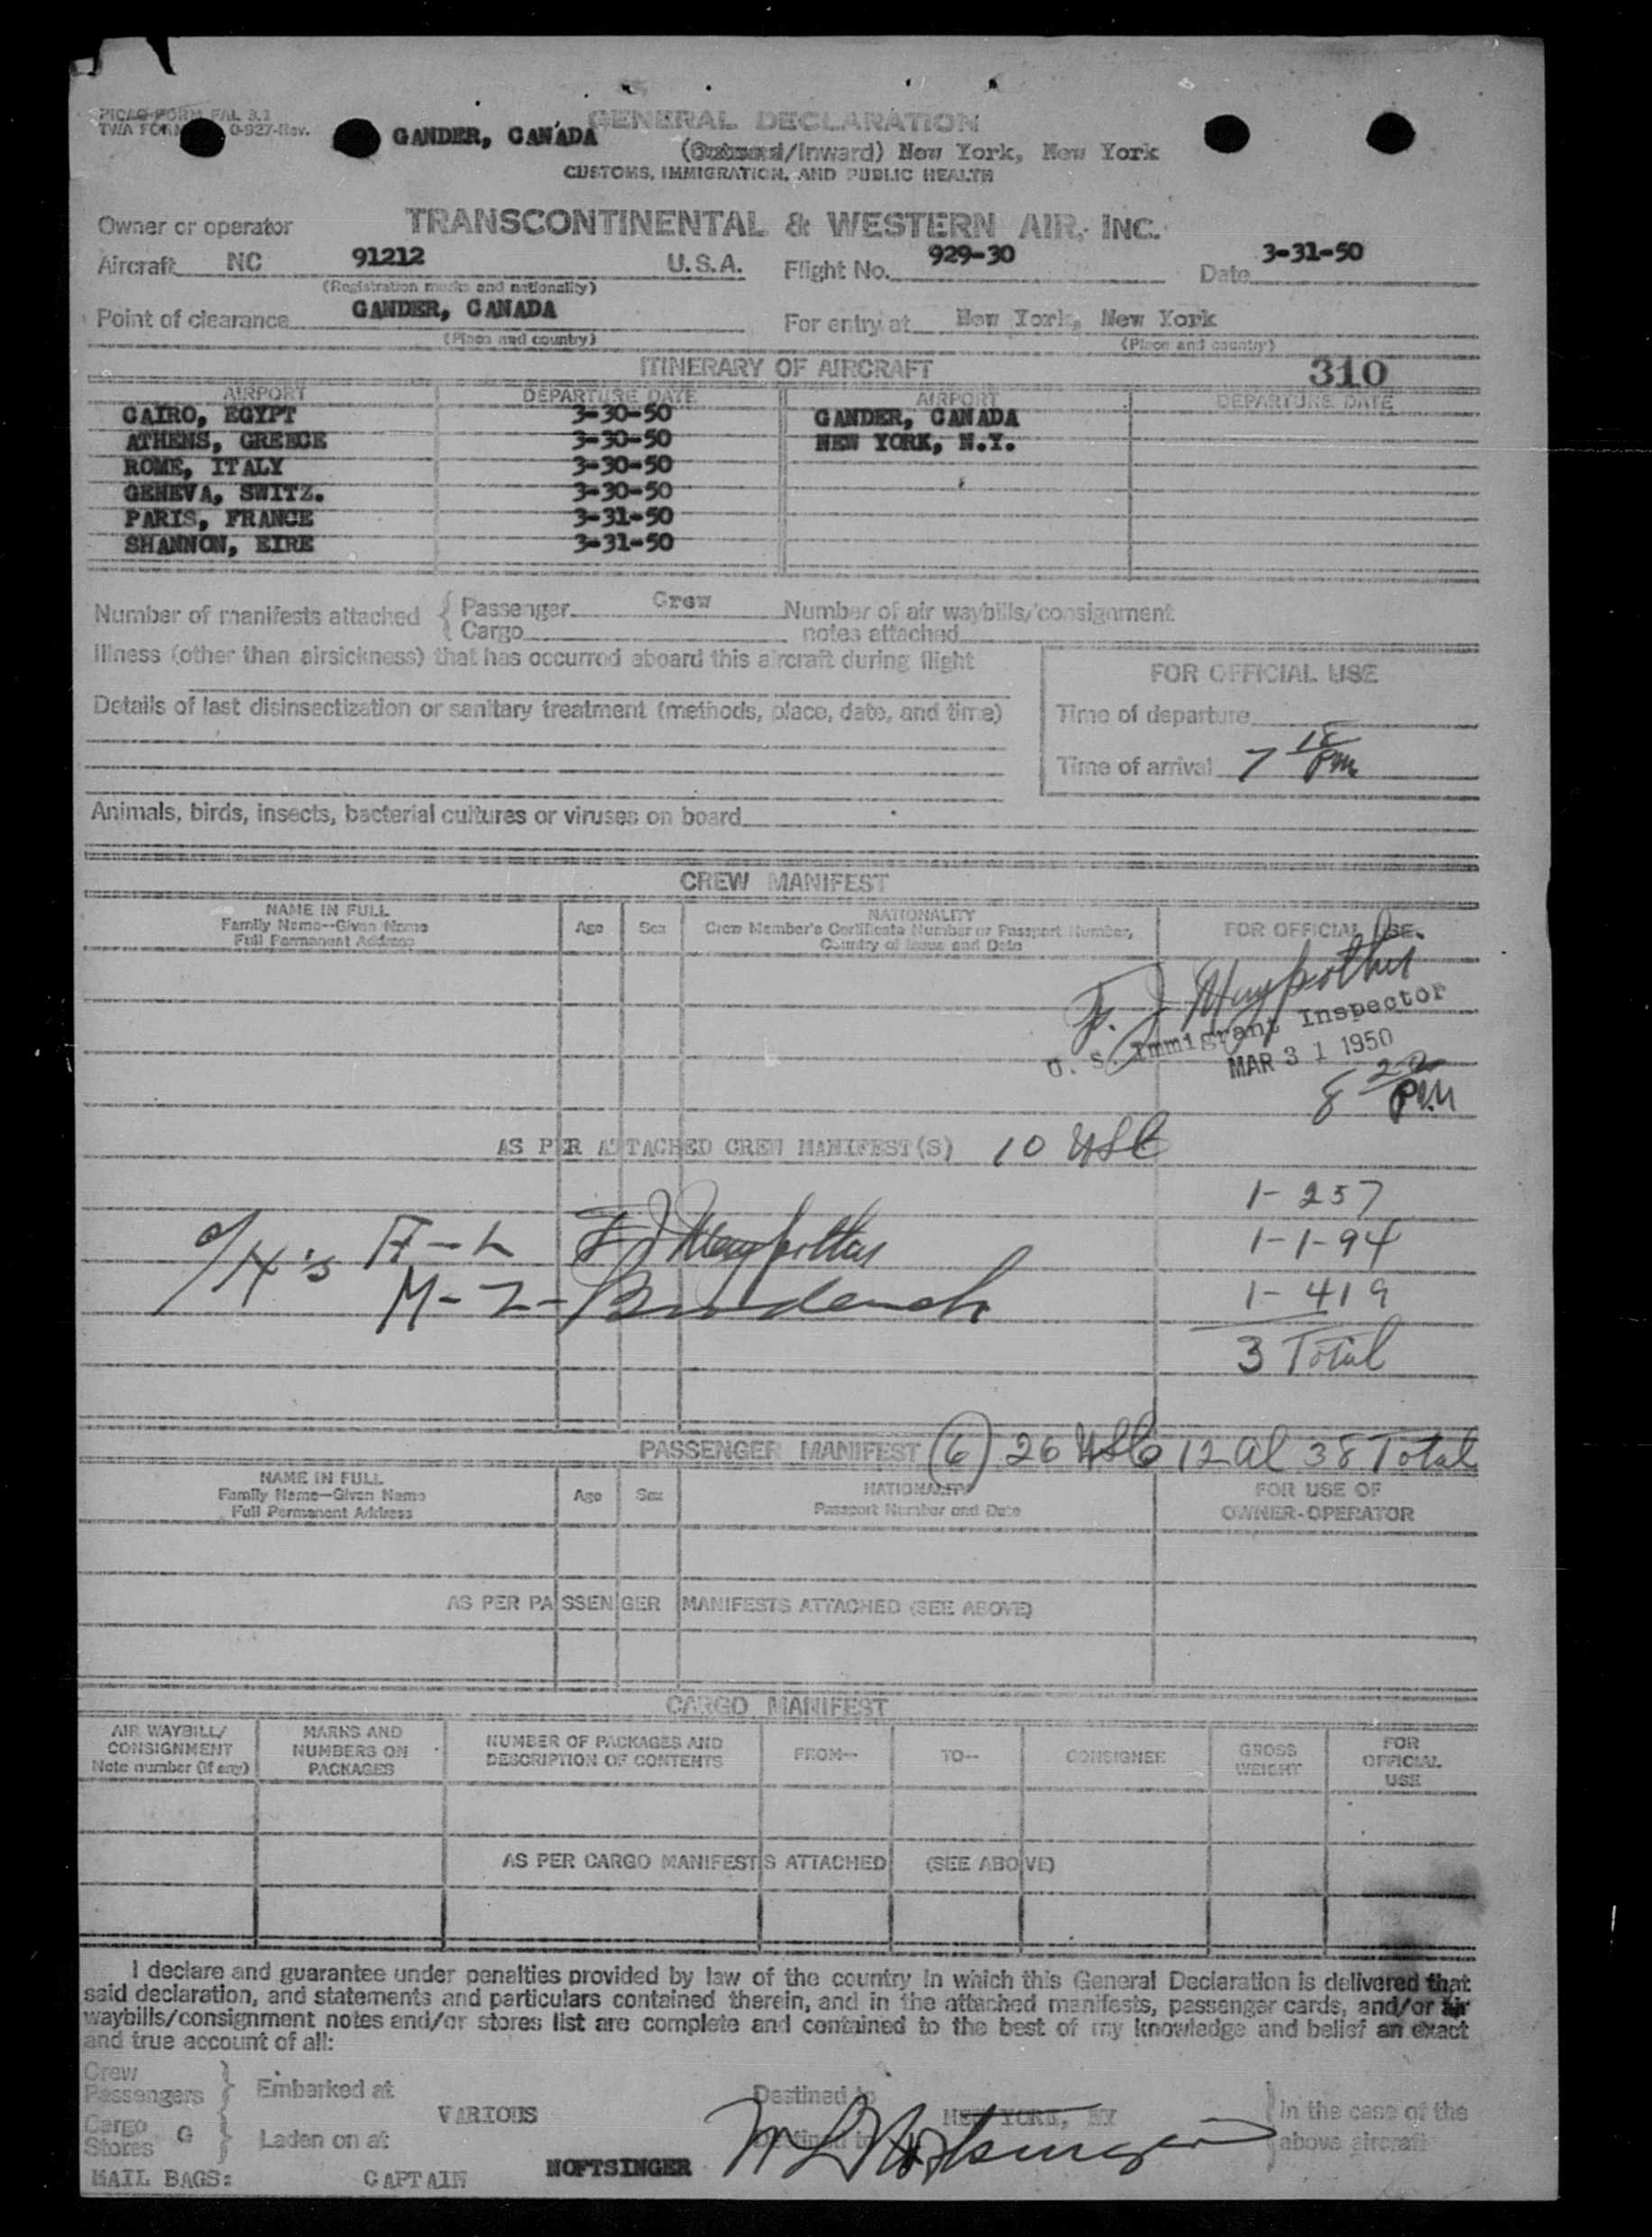 PICAO FORM FAL 3.1
TWA FORM 0-927-Rev.
GANDER, CANADA
GENERAL DECLARATION
(Outward/Inward) New York, New York
CUSTOMS, IMMIGRATION, AND PUBLIC HEALTH
Owner or operator TRANSCONTINENTAL & WESTERN AIR, INC.
Aircraft NC 91212 U.S.A. Flight No. 929-30 Date 3-31-50
(Registration marks and nationality)
Point of clearance GANDER, CANADA For entry at New York, New York
(Place and country) (Place and country)
ITINERARY OF AIRCRAFT 310
AIRPORT DEPARTURE DATE AIRPORT DEPARTURE DATE
CAIRO, EGYPT 3-30-50 GANDER, CANADA
ATHENS, GREECE 3-30-50 NEW YORK, N.Y.
ROME, ITALY 3-30-50
GENEVA, SWITZ. 3-30-50
PARIS, FRANCE 3-31-50
SHANNON, EIRE 3-31-50
Number of manifests attached { Passenger Crew Number of air waybills/consignment
Cargo notes attached
Illness (other than airsickness) that has occurred aboard this aircraft during flight
FOR OFFICIAL USE
Details of last disinsectization or sanitary treatment (methods, place, date, and time)
Time of departure
Time of arrival 7 18 PM
Animals, birds, insects, bacterial cultures or viruses on board
CREW MANIFEST
NAME IN FULL
Family Name--Given Name
Full Permanent Address
Age Sex
NATIONALITY
Crew Member's Certificate Number or Passport Number,
Country of Issue and Date
FOR OFFICIAL USE
F. J.
U. S. Immigrant Inspector
MAR 31 1950
8 20 PM
AS PER ATTACHED CREW MANIFEST(S) 10 USC
1- 257
A-L F J 1-1-94
M-Z- 1- 419
3 Total
PASSENGER MANIFEST (6) 26 USC 12 al 38 Total
NAME IN FULL
Family Name--Given Name
Full Permanent Address
Age Sex
NATIONALITY
Passport Number and Date
FOR USE OF
OWNER-OPERATOR
AS PER PASSENGER MANIFESTS ATTACHED (SEE ABOVE)
CARGO MANIFEST
AIR WAYBILL/
CONSIGNMENT
Note number (if any)
MARKS AND
NUMBERS ON
PACKAGES
NUMBER OF PACKAGES AND
DESCRIPTION OF CONTENTS
FROM-- TO-- CONSIGNEE
GROSS
WEIGHT
FOR
OFFICIAL
USE
AS PER CARGO MANIFESTS ATTACHED (SEE ABOVE)
I declare and guarantee under penalties provided by law of the country in which this General Declaration is delivered that
said declaration, and statements and particulars contained therein, and in the attached manifests, passenger cards, and/or air
waybills/consignment notes and/or stores list are complete and contained to the best of my knowledge and belief an exact
and true account of all:
Crew
Passengers } Embarked at Destined to
VARIOUS NEW YORK, NY
Cargo G
Stores } Laden on at Destined to
In the case of the
above aircraft
MAIL BAGS: CAPTAIN NOFTSINGER